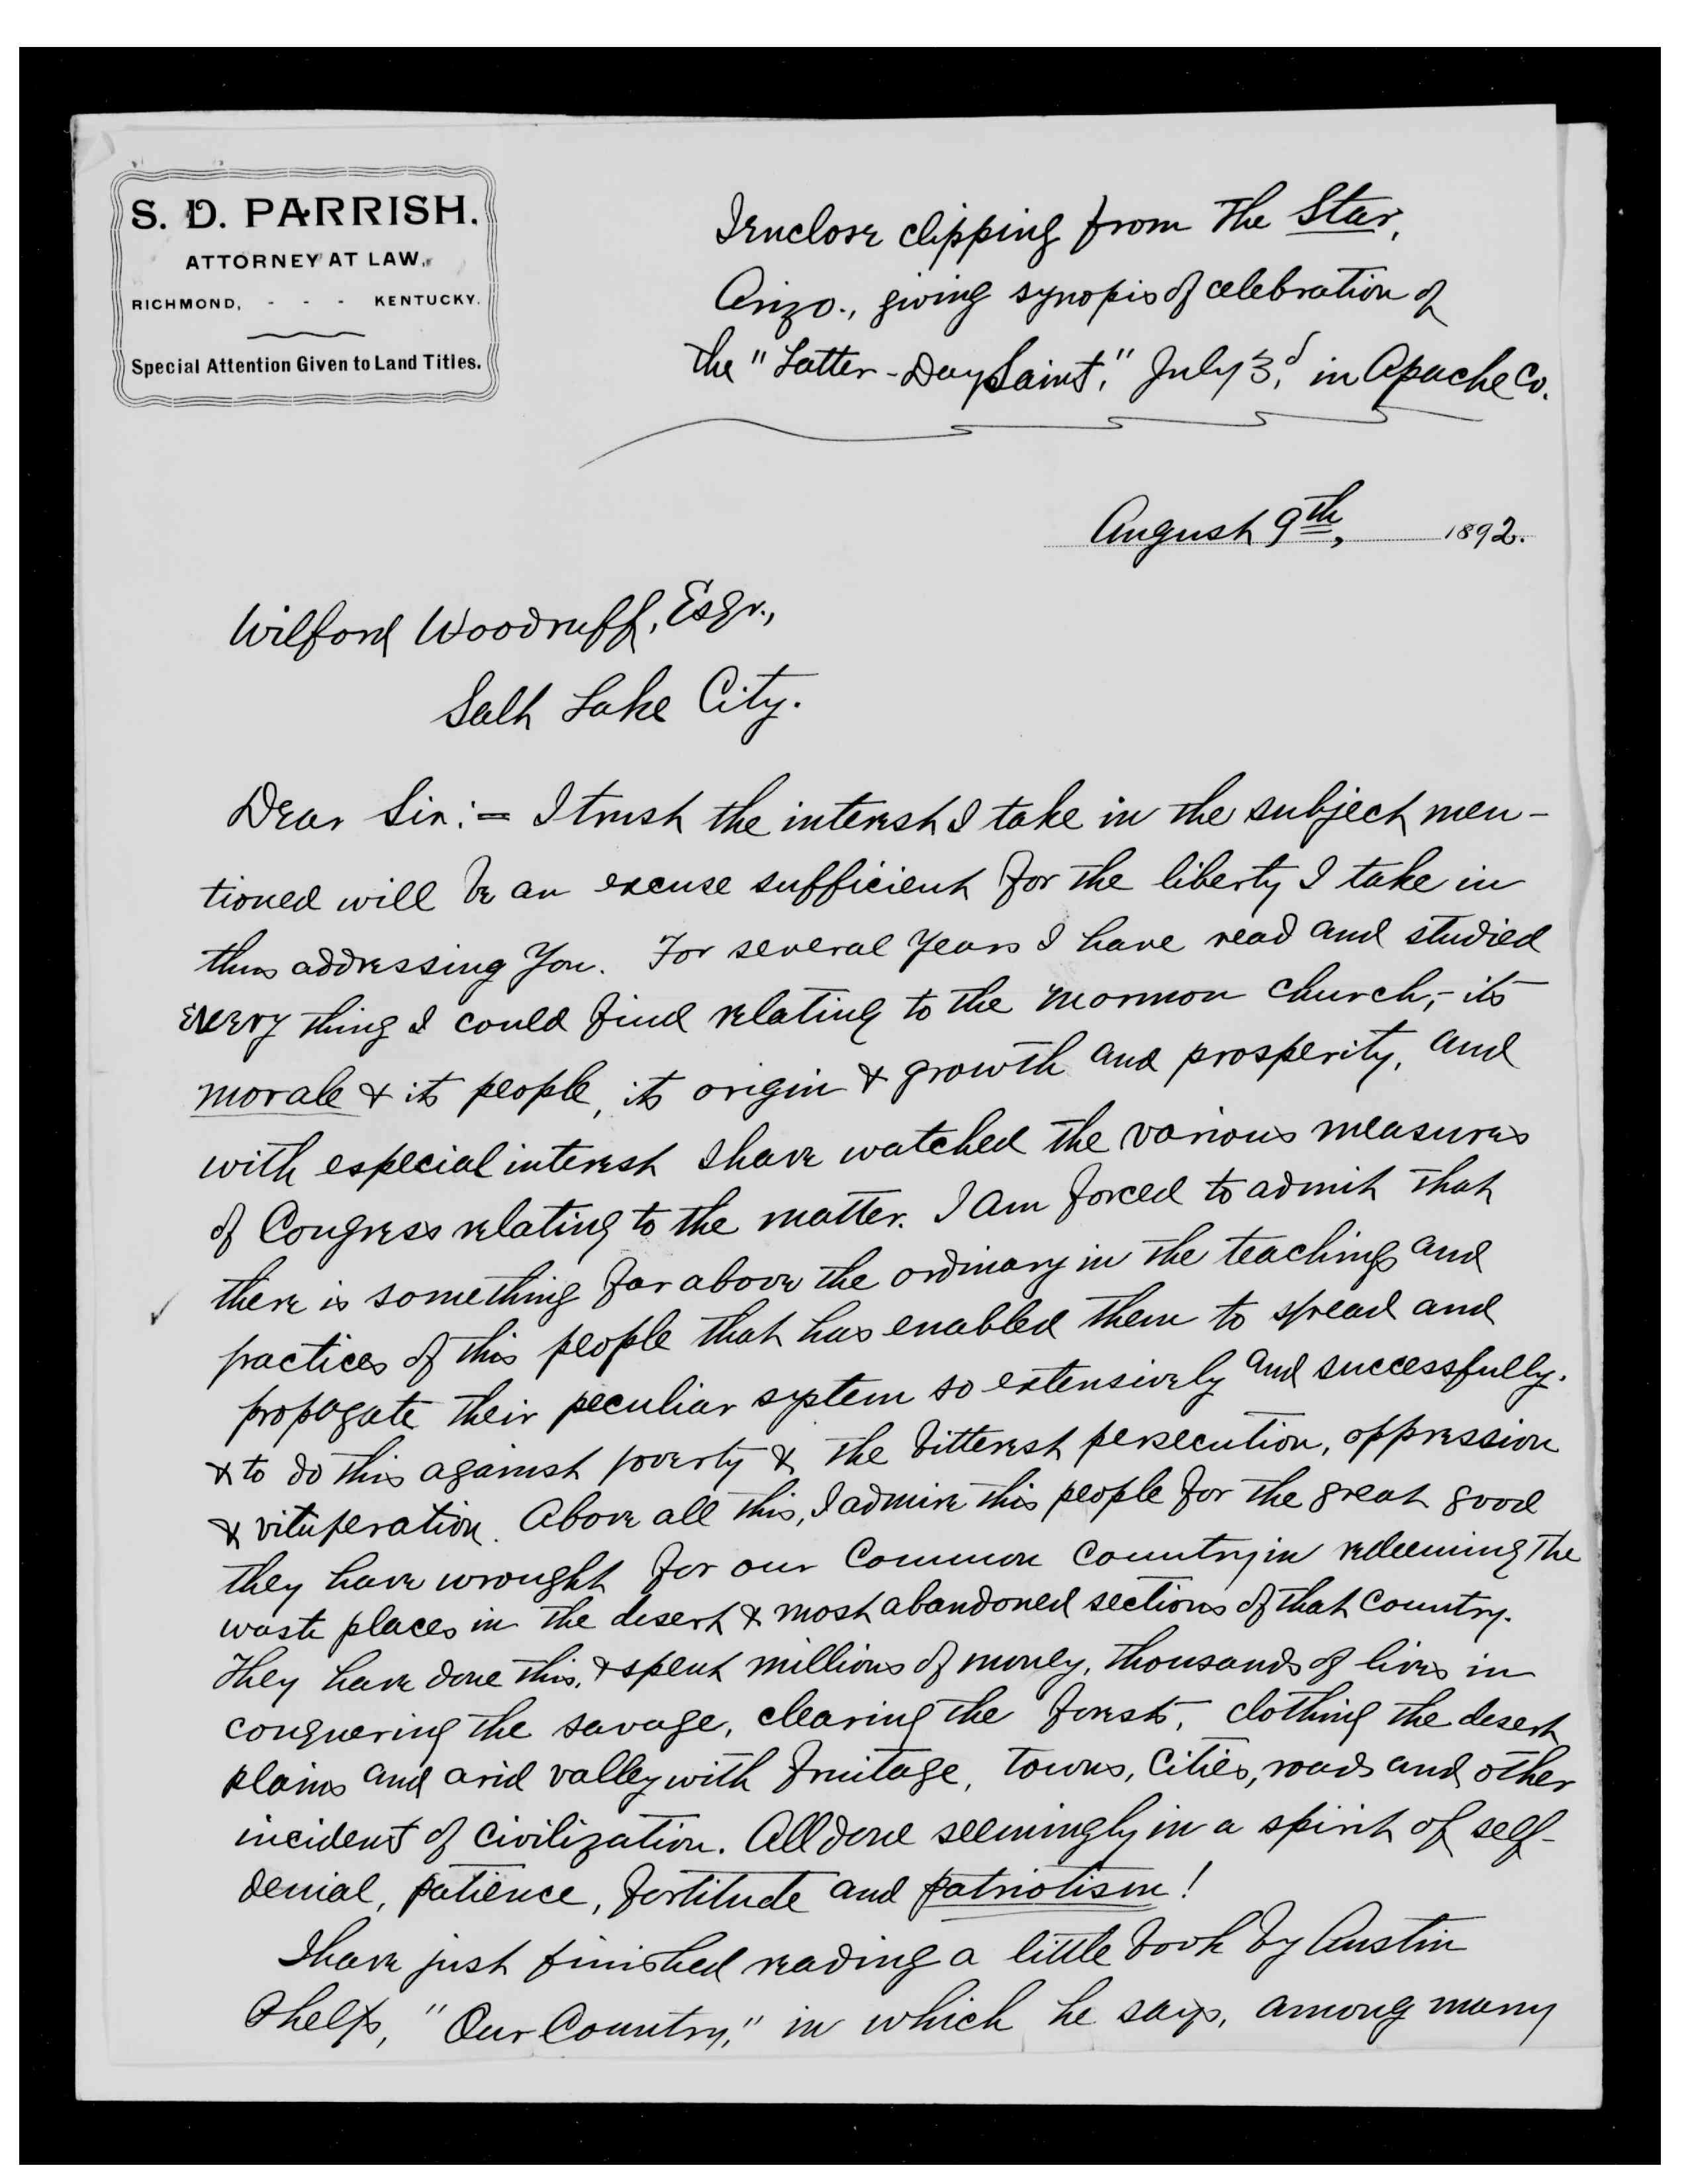 S. D. PARRISH.
ATTORNEY AT LAW.
RICHMOND, - - - KENTUCKY.
Special Attention Given to Land Titles.
I enclose clipping from The Star,
Arizo., giving synopis of celebration of
the "Latter-Day Saint," July 3d, in Apache Co.
August 9th, 1892.
Wilford Woodruff, Esqr.,
Salt Lake City.
Dear Sir:= I trust the interest I take in the subject men-
tioned will be an excuse sufficient for the liberty I take in
thus addressing you. For several years I have read and studied
every thing I could find relating to the Mormon church,- its
morale & its people, its origin & growth and prosperity, and
with especial interest I have watched the various measures
of Congress relating to the matter. I am forced to admit that
there is something far above the ordinary in the teachings and
practices of this people that has enabled them to spread and
propogate their peculiar system so extensively and successfully.
& to do this against poverty & the bitterest persecution, oppression
& vituperation. Above all this, I admire this people for the great good
they have wrought for our Common Country in redeeming the
waste places in the desert & most abandoned sections of that Country.
They have done this, & spent millions of money, thousands of lives in
conquering the savage, clearing the forests, clothing the desert
plains and arid valley with fruitage, towns, cities, roads and other
incidents of civilization. All done seemingly in a spirit of self-
denial, patience, fortitude and patriotism!
I have just finished reading a little book by Austin
Phelps, "Our Country," in which he says, among many